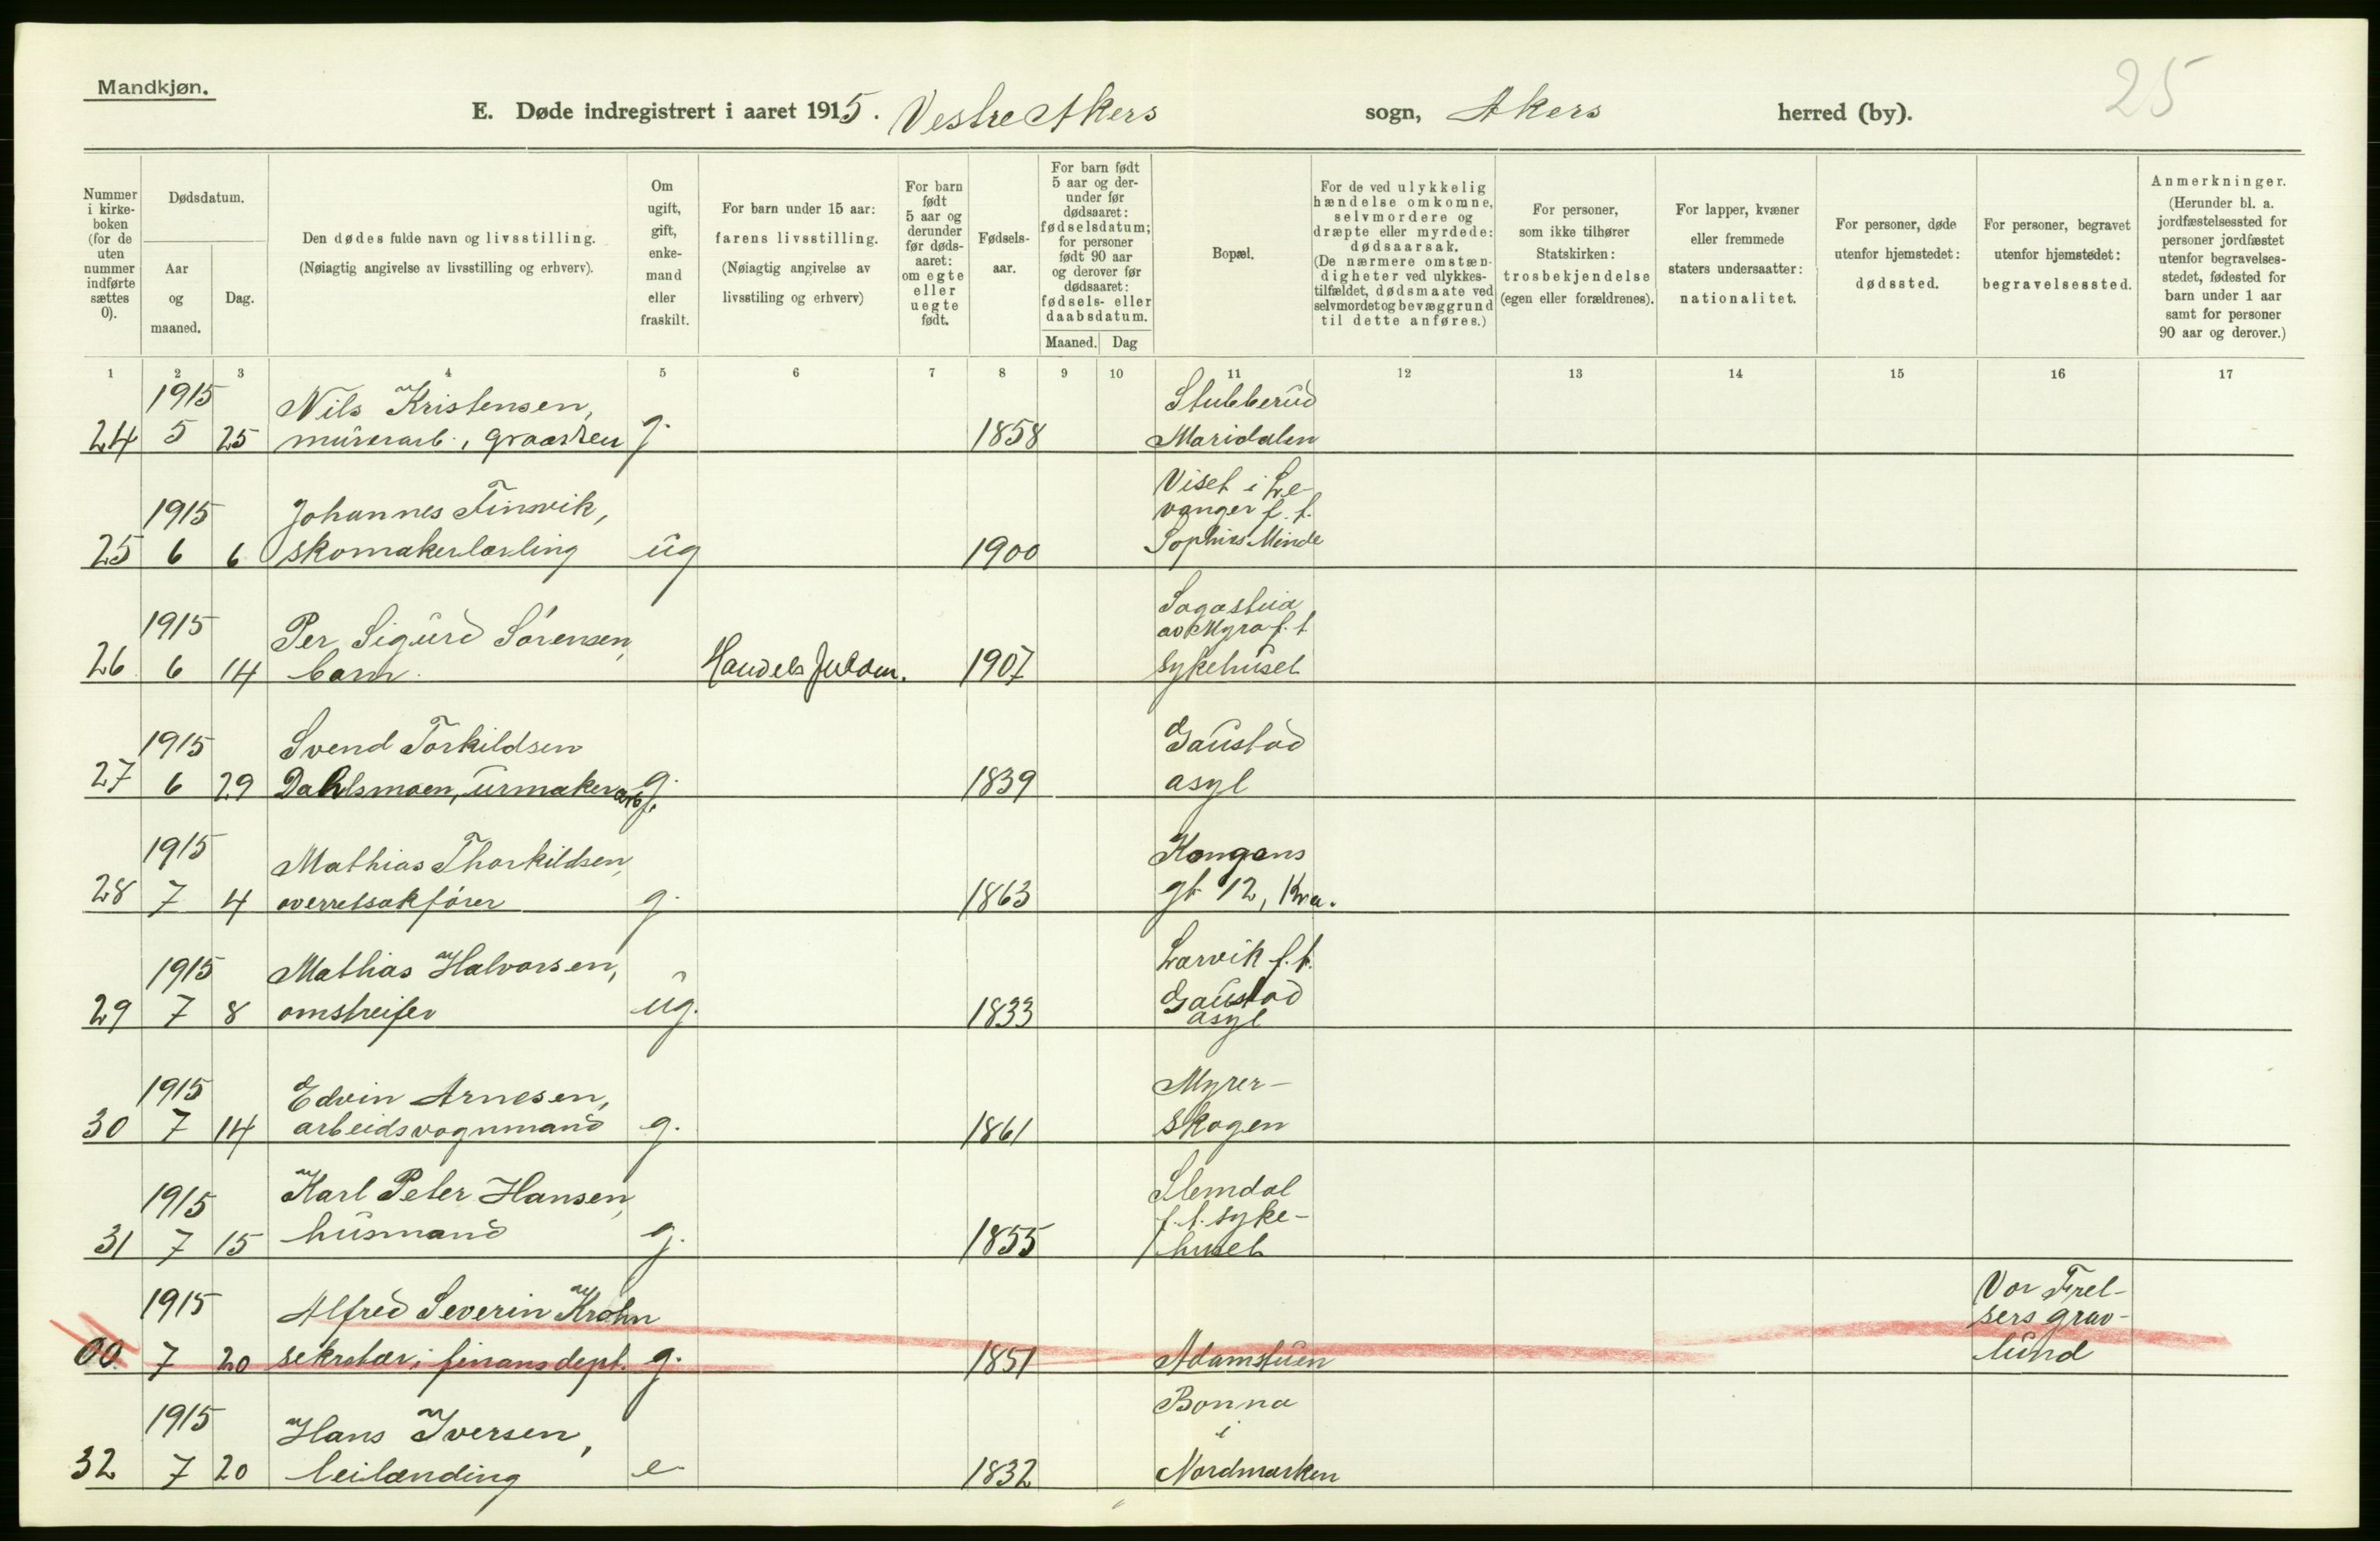 Mandkjøn.
25
E. Døde indregistrert i aaret 1915. Vestre Akers sogn, Akers herred (by).
Nummer
i kirke-
boken
(for de
uten
nummer
indførte
sættes
0).
Dødsdatum.
Aar
og
maaned.
Dag.
Den dødes fulde navn og livsstilling.
(Nøiagtig angivelse av livsstilling og erhverv).
Om
ugift,
gift,
enke-
mand
eller
fraskilt.
For barn under 15 aar:
farens livsstilling.
(Nøiagtig angivelse av
livsstiling og erhverv)
For barn
født
5 aar og
derunder
før døds-
aaret:
om egte
eller
uegte
født.
Fødsels-
aar.
For barn født
5 aar og der-
under før
dødsaaret:
fødselsdatum;
for personer
født 90 aar
og derover før
dødsaaret:
fødsels- eller
daabsdatum.
Maaned. Dag
Bopæl.
For de ved ulykkelig
hændelse omkomne,
selvmordere og
dræpte eller myrdede:
dødsaarsak.
(De nærmere omstæn-
digheter ved ulykkes-
tilfældet, dødsmaate ved
selvmordet og bevæggrund
til dette anføres.)
For personer,
som ikke tilhører
Statskirken:
trosbekjendelse
(egen eller forældrenes).
For lapper, kvæner
eller fremmede
staters undersaatter:
nationalitet.
For personer, døde
utenfor hjemstedet:
dødssted.
For personer, begravet
utenfor hjemstedet:
begravelsessted.
Anmerkninger.
(Herunder bl. a.
jordfæstelsessted for
personer jordfæstet
utenfor begravelses-
stedet, fødested for
barn under 1 aar
samt for personer
90 aar og derover.)
1 2 3 4 5 6 7 8 9 10 11 12 13 14 15 16 17
1915 Nils Kristensen, Stubberud
24 5 25 murerarb., graasten g. 1858 Maridalen
Viset i Le-
1915 Johannes Finsvik, vanger f. t.
25 6 6 skomakerlærling ug 1900 Sophies Minde
Sagastua
1915 Per Sigurd Sörensen, av Myra f. t.
26 6 14 barn. Handels 1907 sykehuset
1915 Svend Torkildsen Gaustad
27 6 29 Dahlsmoen, urmakerarb. g. 1839 asyl
1915 Mathias Thorkildsen, Kongens
28 7 4 overretsakförer g. 1863 gt 12, Kra.
1915 Mathias Halvorsen, Larvik f. t.
Gaustad
29 7 8 omstreifer ug. 1833 asyl
1915 Edvin Arnesen, Myrer-
30 7 14 arbeidsvognmand g. 1861 skogen
1915 Karl Peter Hansen, Slemdal
f. t. syke-
31 7 15 husmand g. 1855 huset
Vor Frel-
1915 Alfred Severin Krohn sers grav-
00. 7 20 sekretær i finansdept. g. 1851 Adamstuen lund
Bonna
1915 Hans Iversen, i
32 7 20 leilænding e 1832 Nordmarken